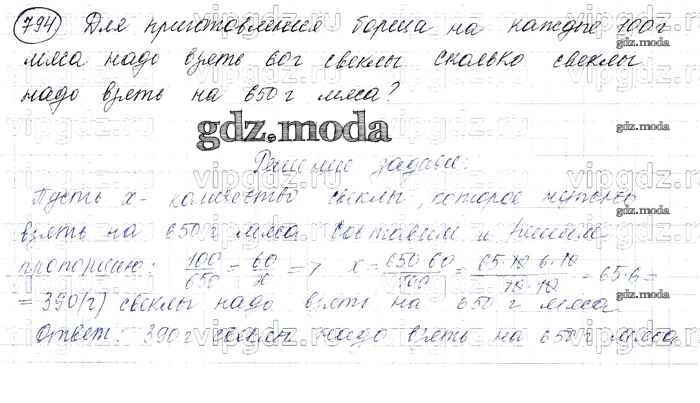 794) Для приготовления борща на каждые 100г
мяса надо взять 60г свеклы сколько свеклы
надо взять на 650 г мяса?
gdz.moda
Решение задачи:
Пусть x - количество свеклы, которое нужно
взять на 650 г мяса Составим и решим
пропорцию: 100/650 = 60/x => x = 650·60/100 = 65·10·6·10/10·10 = 65·6=
= 390(г) свеклы надо взять на 650 г мяса
Ответ: 390г свеклы надо взять на 650г мяса